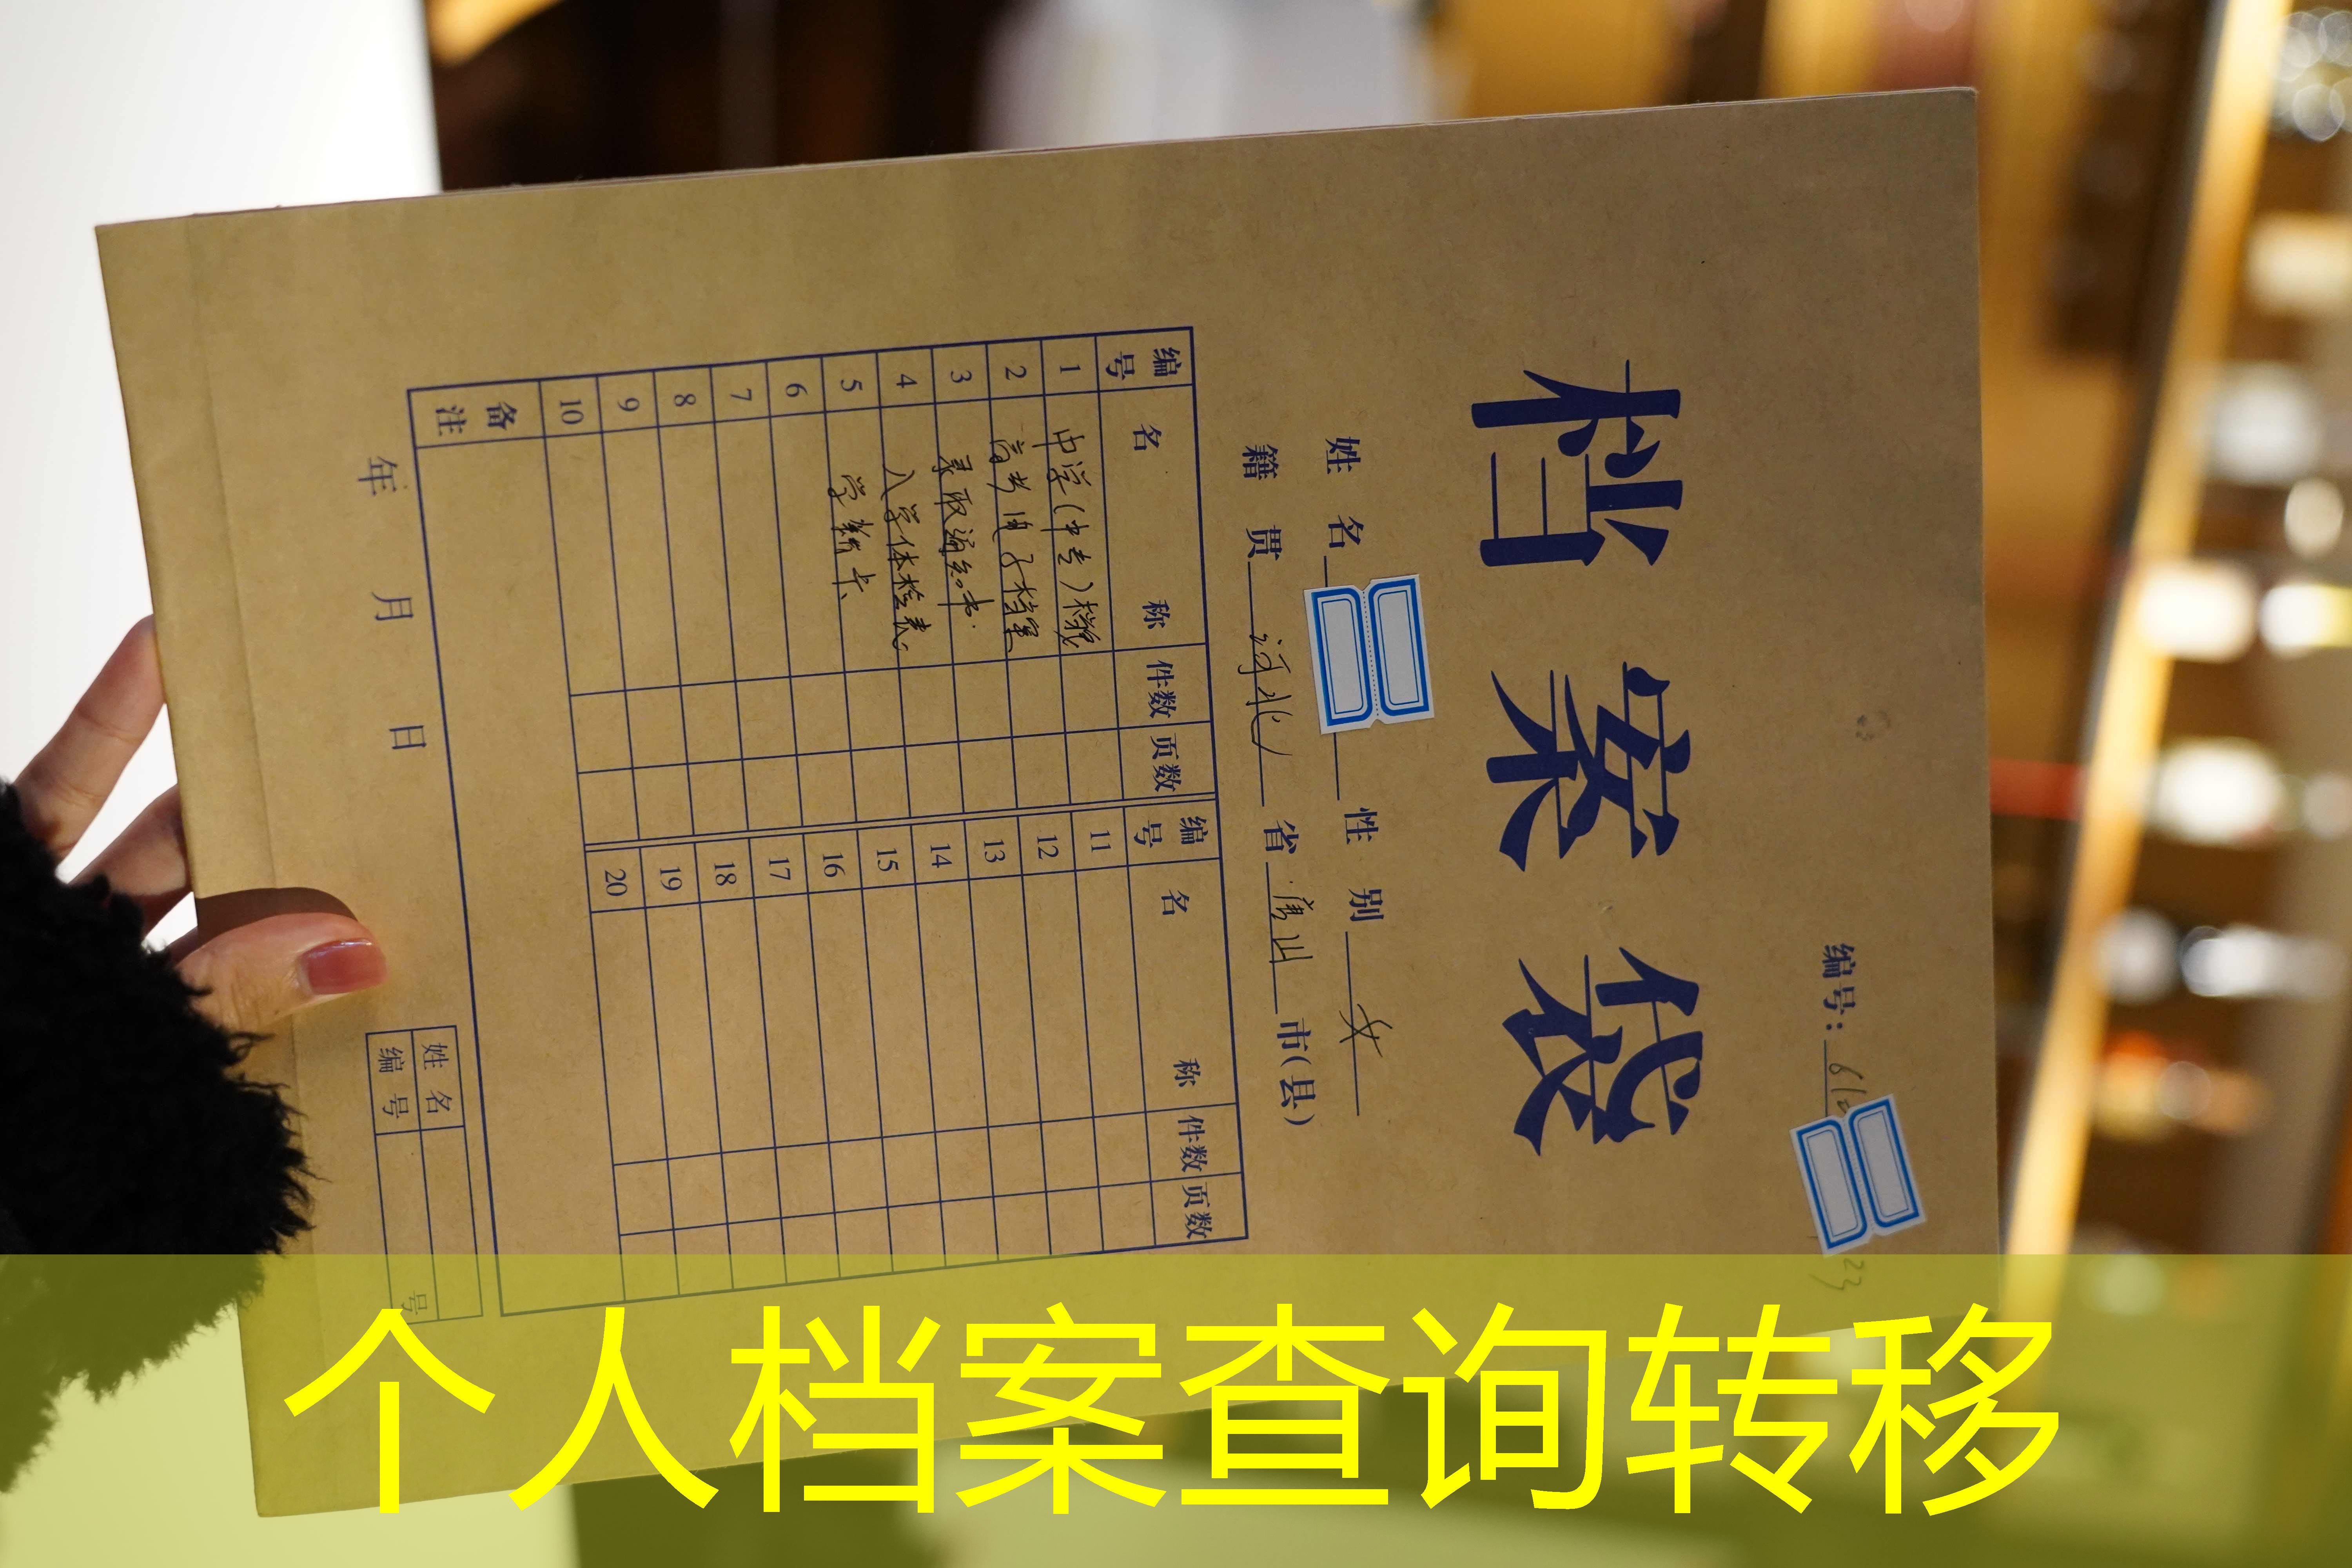 编号: 612
23
档案袋
姓名 性别 女
籍贯 河北 省 唐山 市(县)
编号 名称 件数 页数 编号 名称 件数 页数
1 中学(中专)档案 11
2 高考电子档案 12
3 录取通知书. 13
4 入学体检表 14
5 学籍卡 15
6 16
7 17
8 18
9 19
10 20
备注
年 月 日
姓名
编号 号
个人档案查询转移